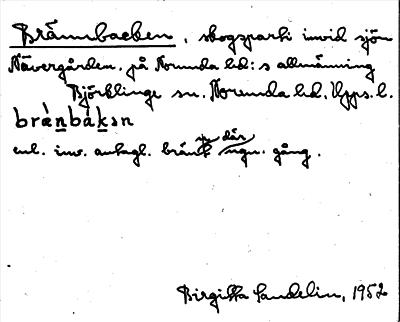 Brännbacken, skogsparti invid sjön
Návergården, på Norunda hd:s allmänning
Björklinge sn. Norunda hd. Upps. l.
bræ̀n̲bák̲ən
enl. inv. antagl. bränt där ngn. gång.
Birgitta Sandelin, 1952